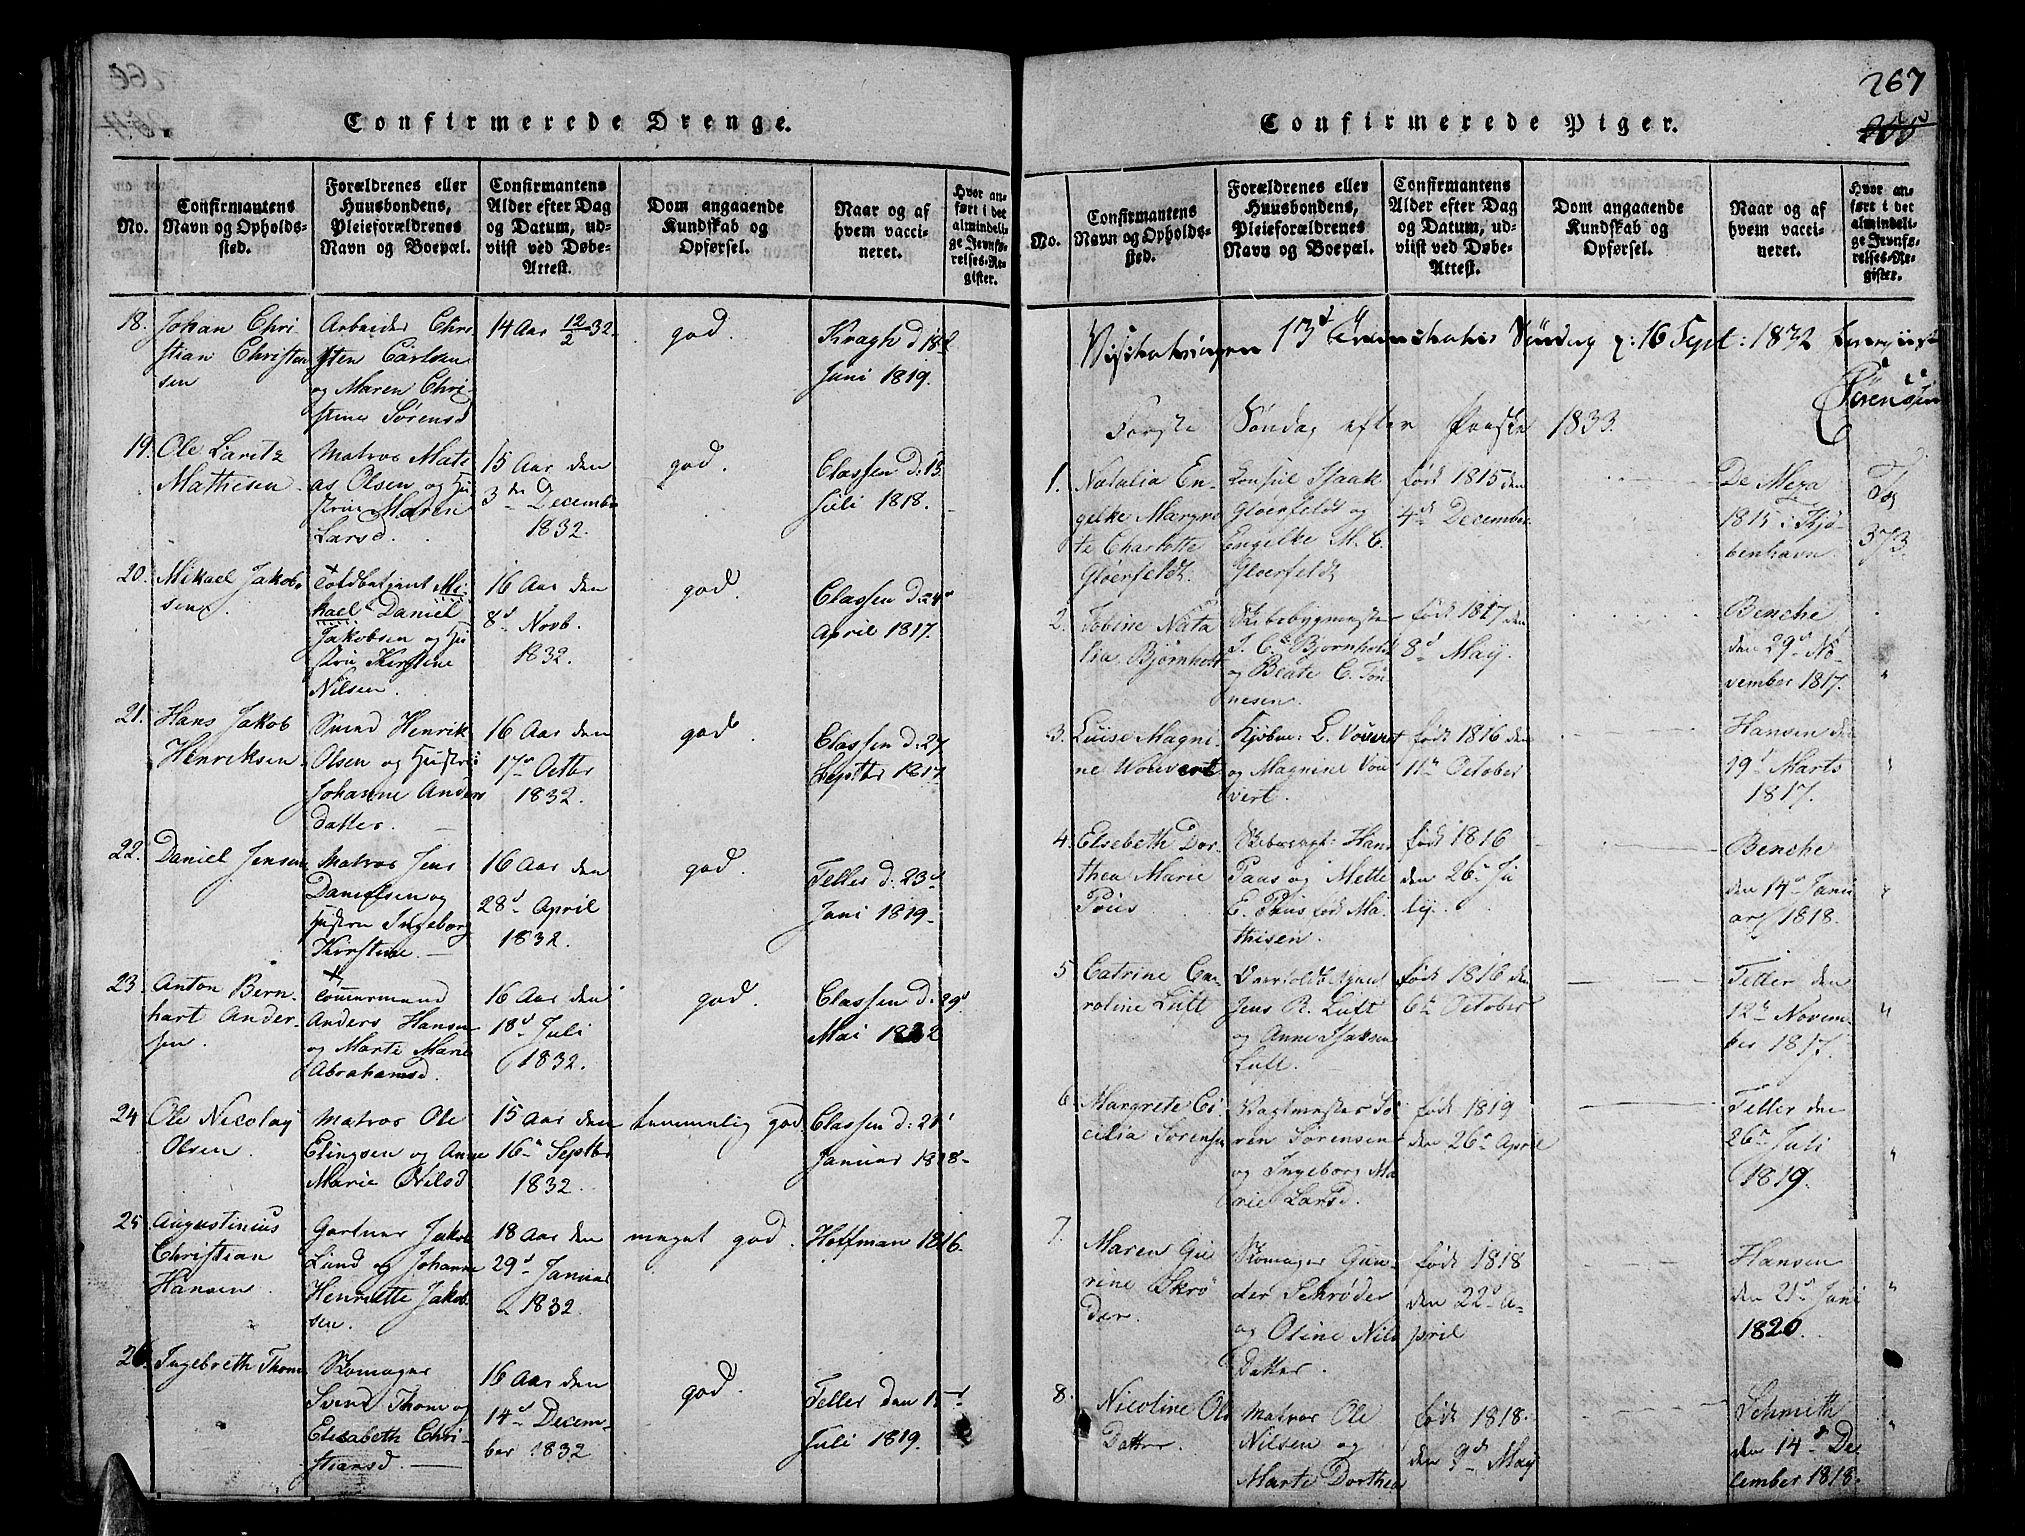 266
Confirmerede Drenge.
No.
Confirmantens
Navn og Opholds-
sted.
Forældrenes eller
Huusbondens,
Pleieforældrenes
Navn og Boepæl.
Confirmantens
Alder efter Dag
og Datum, ud-
viist ved Døbe-
Attest.
Dom angaaende
Kundskab og
Opførsel.
Naar og af
hvem vacci-
neret.
Hvor an-
ført i det
almindeli-
ge Jevnfø-
relses-Re-
gister.
18.
Johan Chri-
stian Christen
sen
Arbeider Chri
sten Carlsen
og Maren Chri-
stine Sørensd
14 Aar 12/2 32
god.
Kragh d 18
Juni 1819.
19.
Ole Laritz
Mathisen
Matros Mati
as Olsen og Hu
strue Maren
Larsd.
15 Aar den
3die December
1832.
god.
Classen d: 13
Juli 1818.
20.
Mikael Jakob-
sen
Toldbetient Mi-
kael Daniel
Jakobsen og Hu
stru Kirstine
Nilsen.
16 Aar den
8d Novb.
1832.
god.
Classen d: 24
April 1817.
21.
Hans Jakob
Henriksen
Svend Henrik
Olsen og Hustru
Johanne Anders
datter.
16 Aar den
17de Octbr
1832.
god
Classen d: 27
Septbr 1817
22.
Daniel Jensen
Matros Jens
Danielsen og
Hustru Ingeborg
Kirstine
16 Aar den
28d April
1832.
god.
Teller d. 23d
Juni 1819.
23.
Anton Bern-
hart Ander-
sen.
Tømmermand
Anders Hansen
og Marte Marie
Abrahamsd.
16 Aar den
18d Juli
1832.
god.
Classen d: 29d
Mai 1822
24
Ole Nicolay
Olsen.
Matros Ole
Elingsen og Anne
Marie Nilsd
15 Aar den
16de Septbr
1832
temmelig god.
Classen d: 21
Januar 1818-
25
Augustinius
Christian
Hansen
Gartner Jakob
Lund og Johanne
Henriette Jakob
sen.
18 Aar den
29d Januar
1832.
meget god.
Hoffman 1816.
26.
Ingebreth Thom
Skomager
Svend Thom og
Elisabeth Chri-
stiansd.
16 Aar den
14d Decem-
ber 1832
god.
Teller den 1
Juli 1819.
267
Confirmerede Piger.
No.
Confirmantens
Navn og Opholds-
sted.
Forældrenes eller
Huusbondens,
Pleieforældrenes
Navn og Boepæl.
Confirmantens
Alder efter Dag
og Datum, ud-
viist ved Døbe-
Attest.
Dom angaaende
Kundskab og
Opførsel.
Naar og af
hvem vacci-
neret.
Hvor an-
ført i det
almindeli-
ge Jevnfø-
relses-Re-
gister.
13d Trinitatis Søndag 16 Sept: 1832
Sörenssen
Første Søndag efter Paaske 1833.
1.
Natalia En-
gelke Margre
te Charlotte
Gløerfeldt.
Konsul Isaak
Gløerfeldt og
Engelke M. C.
Gløerfeldt
født 1815 den
4d December
De Meza
1815 i Kjø-
benhavn.
373.
2.
Tobine Nata
lia Bjørnholdt
Skibsbygmester
J. C. Bjørnholdt
og Beate C. Tön
nesen.
født 1817 den
8d Maij.
Benche
den 29d No-
vember 1817.
3.
Luise Magni-
ne Wouvert
Kjøbm: L. Vouvert
og Magnine Vou
vert.
født 1816 den
11te October
Hansen den
19d Marts
1817.
4.
Elsebeth Dor-
thea Marie
Pous
Hans
Paus og Mette
E. Paus fød Ma-
thisen.
født 1816
den 26de Ju
lij.
Benche
den 14de Janu
ar 1818.
5
Catrine Ca-
roline Luft
Overtoldbetjent
Jens R. Luft
og Anne Isaksen
Luft.
født 1816 den
6te October
Teller den
12te Novem-
ber 1817.
6.
Margrete Ce
cilia Sørensen
Vagtmester Sö
ren Sørensen
og Ingeborg Ma
rie Larsd.
født 1819
den 26de April
Teller den
26de Juli
1819.
7.
Maren Gu
rine Skrö
der.
Skomager Gun-
der Schrøder
og Oline Nils
Datter.
født 1818
den 22d A-
pril
Hansen
den 21de Juni
1820.
8.
Nicoline Ols
Datter.
Matros Ole
Nilsen og
Marte Dorthea
født 1818.
den 9d May
Schmith
den 14d De
cember 1818.